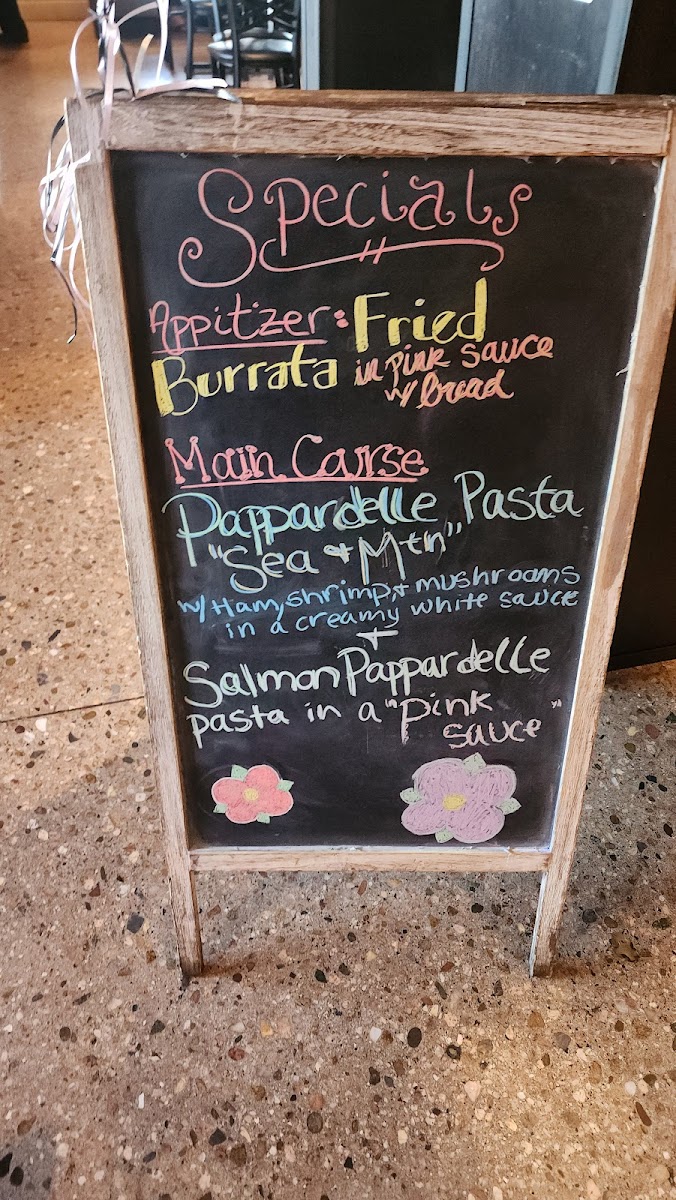 Specials
Appitizer: Fried
Burrata in pink sauce
w/ bread
Main Carse
Pappardelle Pasta
"Sea + Mtn"
w/ Ham, shrimp, + mushrooms
in a creamy white sauce
+
Salmon Pappardelle
pasta in a "pink
sauce"